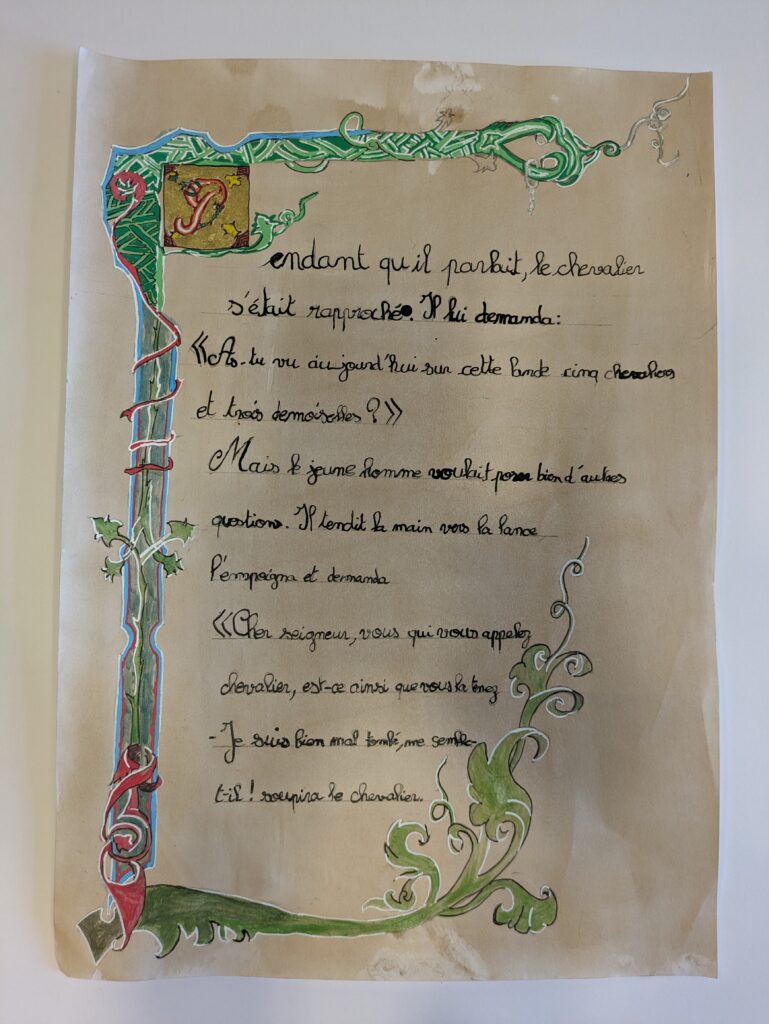 Pendant qu'il parlait, le chevalier
s'était rapproché. Il lui demanda:
«As-tu vu aujourd'hui sur cette lande cinq chevaliers
et trois demoiselles ?»
Mais le jeune homme voulait poser bien d'autres
questions. Il tendit la main vers la lance
l'empoigna et demanda
«Cher seigneur, vous qui vous appelez
chevalier, est-ce ainsi que vous la tenez
- Je suis bien mal tombé, me semble-
t-il ! soupira le chevalier.